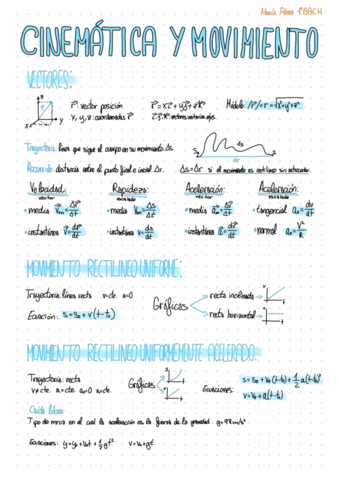 María Pérez 1ºBACH
CINEMÁTICA Y MOVIMIENTO
VECTORES:
r⃗: vector posición
r⃗=xi⃗+yj⃗+zk⃗
Módulo: |r⃗|=r=√x²+y²+z²
x, y, z: coordenadas r⃗
i⃗, j⃗, k⃗: vectores unitarios ejes.
Trayectoria: línea que sigue el cuerpo en su movimiento Δs.
Recorrido: distancia entre el punto final e inicial Δr.
Δs=Δr si el movimiento es rectilíneo sin retroceder.
Velocidad: Rapidez: Aceleración: Aceleración:
vector escalar vector escalar
·media v⃗m=Δr⃗/Δt ·media vm=Δs/Δt ·media a⃗m=Δv⃗/Δt ·tangencial at=dv/dt
·instantánea v⃗=dr⃗/dt ·instantánea v=ds/dt ·instantánea a⃗=dv⃗/dt ·normal an=v²/R
MOVIMIENTO RECTILÍNEO UNIFORME:
Trayectoria: línea recta v=cte. a=0
Gráficas
recta inclinada
recta horizontal
Ecuación: s=s₀+v(t-t₀)
MOVIMIENTO RECTILÍNEO UNIFORMEMENTE ACELERADO:
Trayectoria: recta
v≠cte. a=cte
Gráficas
Ecuaciones:
s=s₀+v₀(t-t₀)+½a(t-t₀)²
v=v₀+a(t-t₀)
Caída libre:
Tipo de mrua en el cual la aceleración es la fuerza de la gravedad. g=9'8 m/s²
Ecuaciones: y=y₀+v₀t+½gt² v=v₀+gt